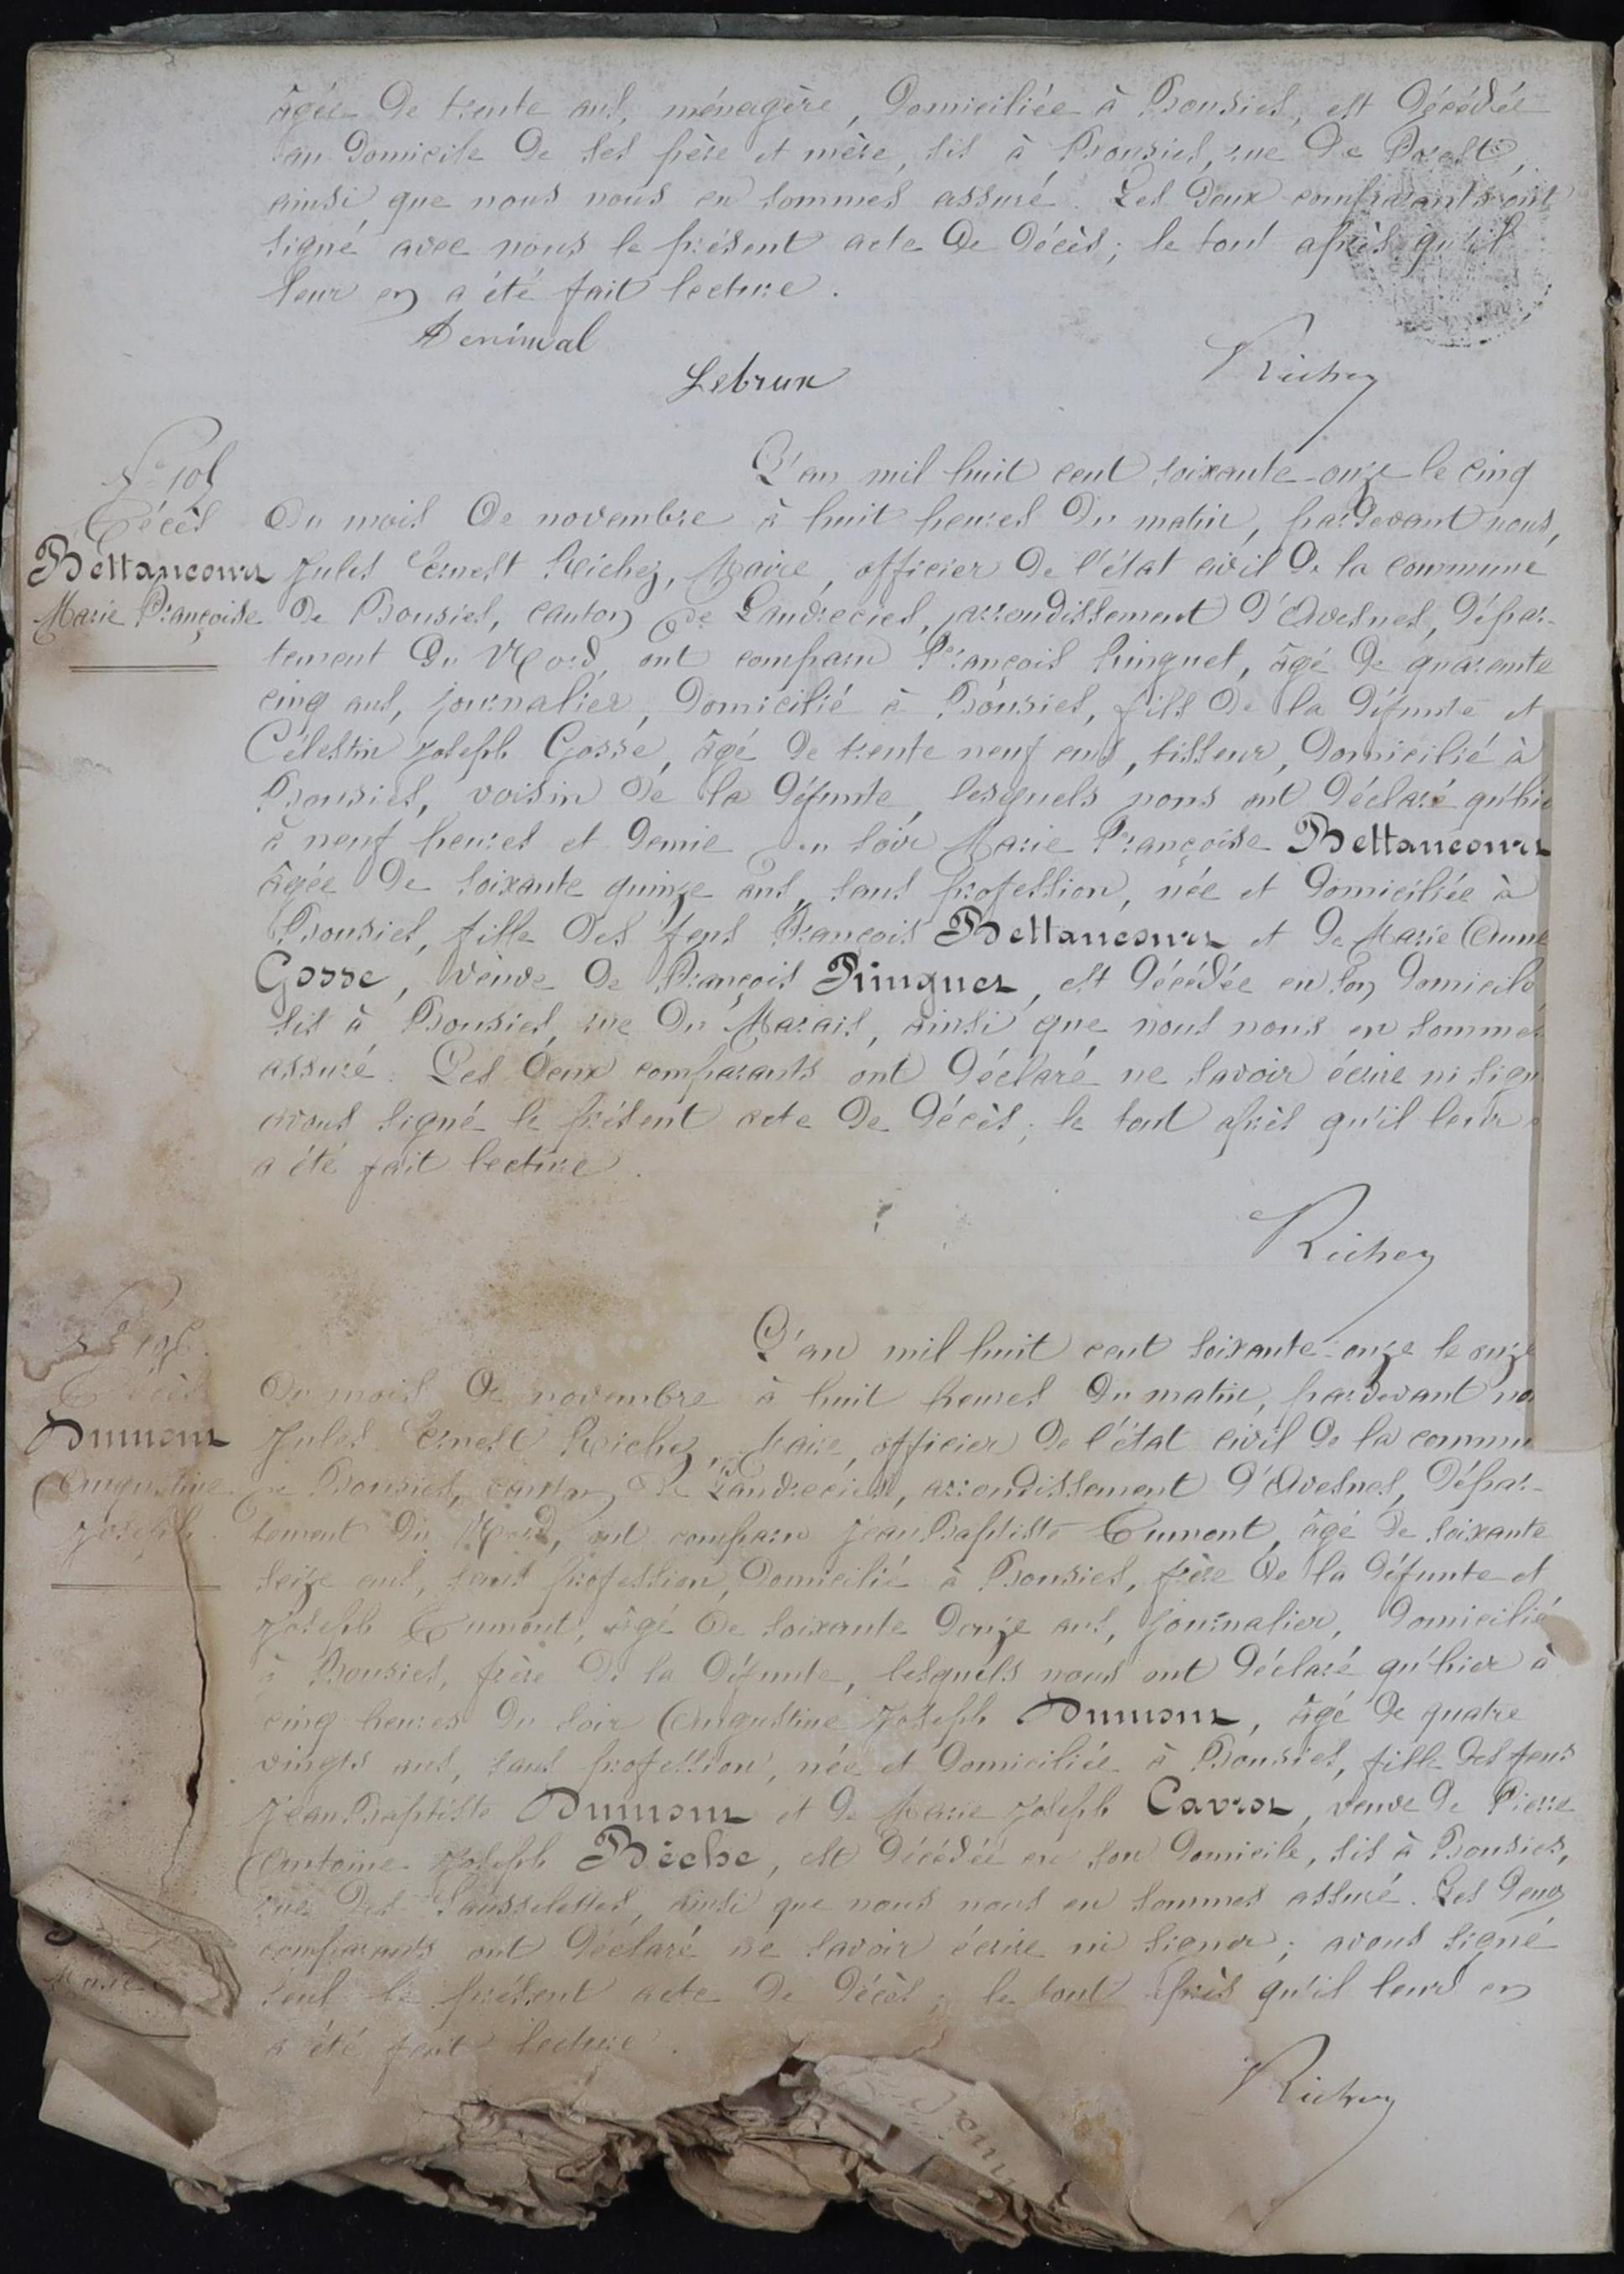 âgée de trente ans, ménagère, domiciliée à Bousies, est décédée
au domicile de ses père et mère, sis à Bousies, rue de
ainsi que nous nous en sommes assuré. Les deux comparants ont
signé avec nous le présent acte de décès; le tout après qu'il
leur en a été fait lecture.
Denimal
Lebrun
Richez
L'an mil huit cent soixante-onze le cinq
N° 105
Décès
Bettancourt
Marie Françoise
du mois de novembre à huit heures du matin, pardevant nous,
Jules Ernest Richez, Maire, officier de l'état civil de la commune
de Bousies, canton de Landrecies, arrondissement d'Avesnes, dépar-
tement du Nord, ont comparu François Ringuet, âgé de quarante
cinq ans, journalier, domicilié à Bousies, fils de la défunte et
Célestin Joseph Gosse, âgé de trente neuf ans, tisseur, domicilié à
Bousies, voisin de la défunte, lesquels nous ont déclaré qu'hie
à neuf heures et demie du soir Marie Françoise Bettancourt
âgée de soixante quinze ans, sans profession, née et domiciliée à
Bousies, fille des feus François Bettancourt et de Marie Anne
Gosse, veuve de François Ringuet, est décédée en son domicile
sis à Bousies, rue du Marais, ainsi que nous nous en sommes
assuré. Les deux comparants ont déclaré ne savoir écrire ni sign
avons signé le présent acte de décès; le tout après qu'il leur
a été fait lecture.
Richez
L'an mil huit cent soixante-onze le onze
N° 106
Décès
Dumont
Augustine
Joseph.
du mois de novembre à huit heures du matin, pardevant no
Jules Ernest Richez, Maire, officier de l'état civil de la commu
de Bousies, canton de Landrecies, arrondissement d'Avesnes, dépar-
tement du Nord, ont comparu Jean Baptiste Dumont, âgé de soixante
seize ans, sans profession, domicilié à Bousies, frère de la défunte et
Joseph Dumont, âgé de soixante douze ans, journalier, domicilié
à Bousies, frère de la défunte, lesquels nous ont déclaré qu'hier à
cinq heures du soir Augustine Joseph Dumont, âgé de quatre
vingts ans, sans profession, née et domiciliée à Bousies, fille des feus
Jean Baptiste Dumont et de Marie Joseph Cavrot, veuve de Pierre
Antoine Joseph Bêche, est décédée en son domicile, sis à Bousies,
rue des ainsi que nous nous en sommes assuré. Les deux
comparants ont déclaré ne savoir écrire ni signer; avons signé
seul le présent acte de décès; le tout après qu'il leurs en
a été fait lecture.
Richez